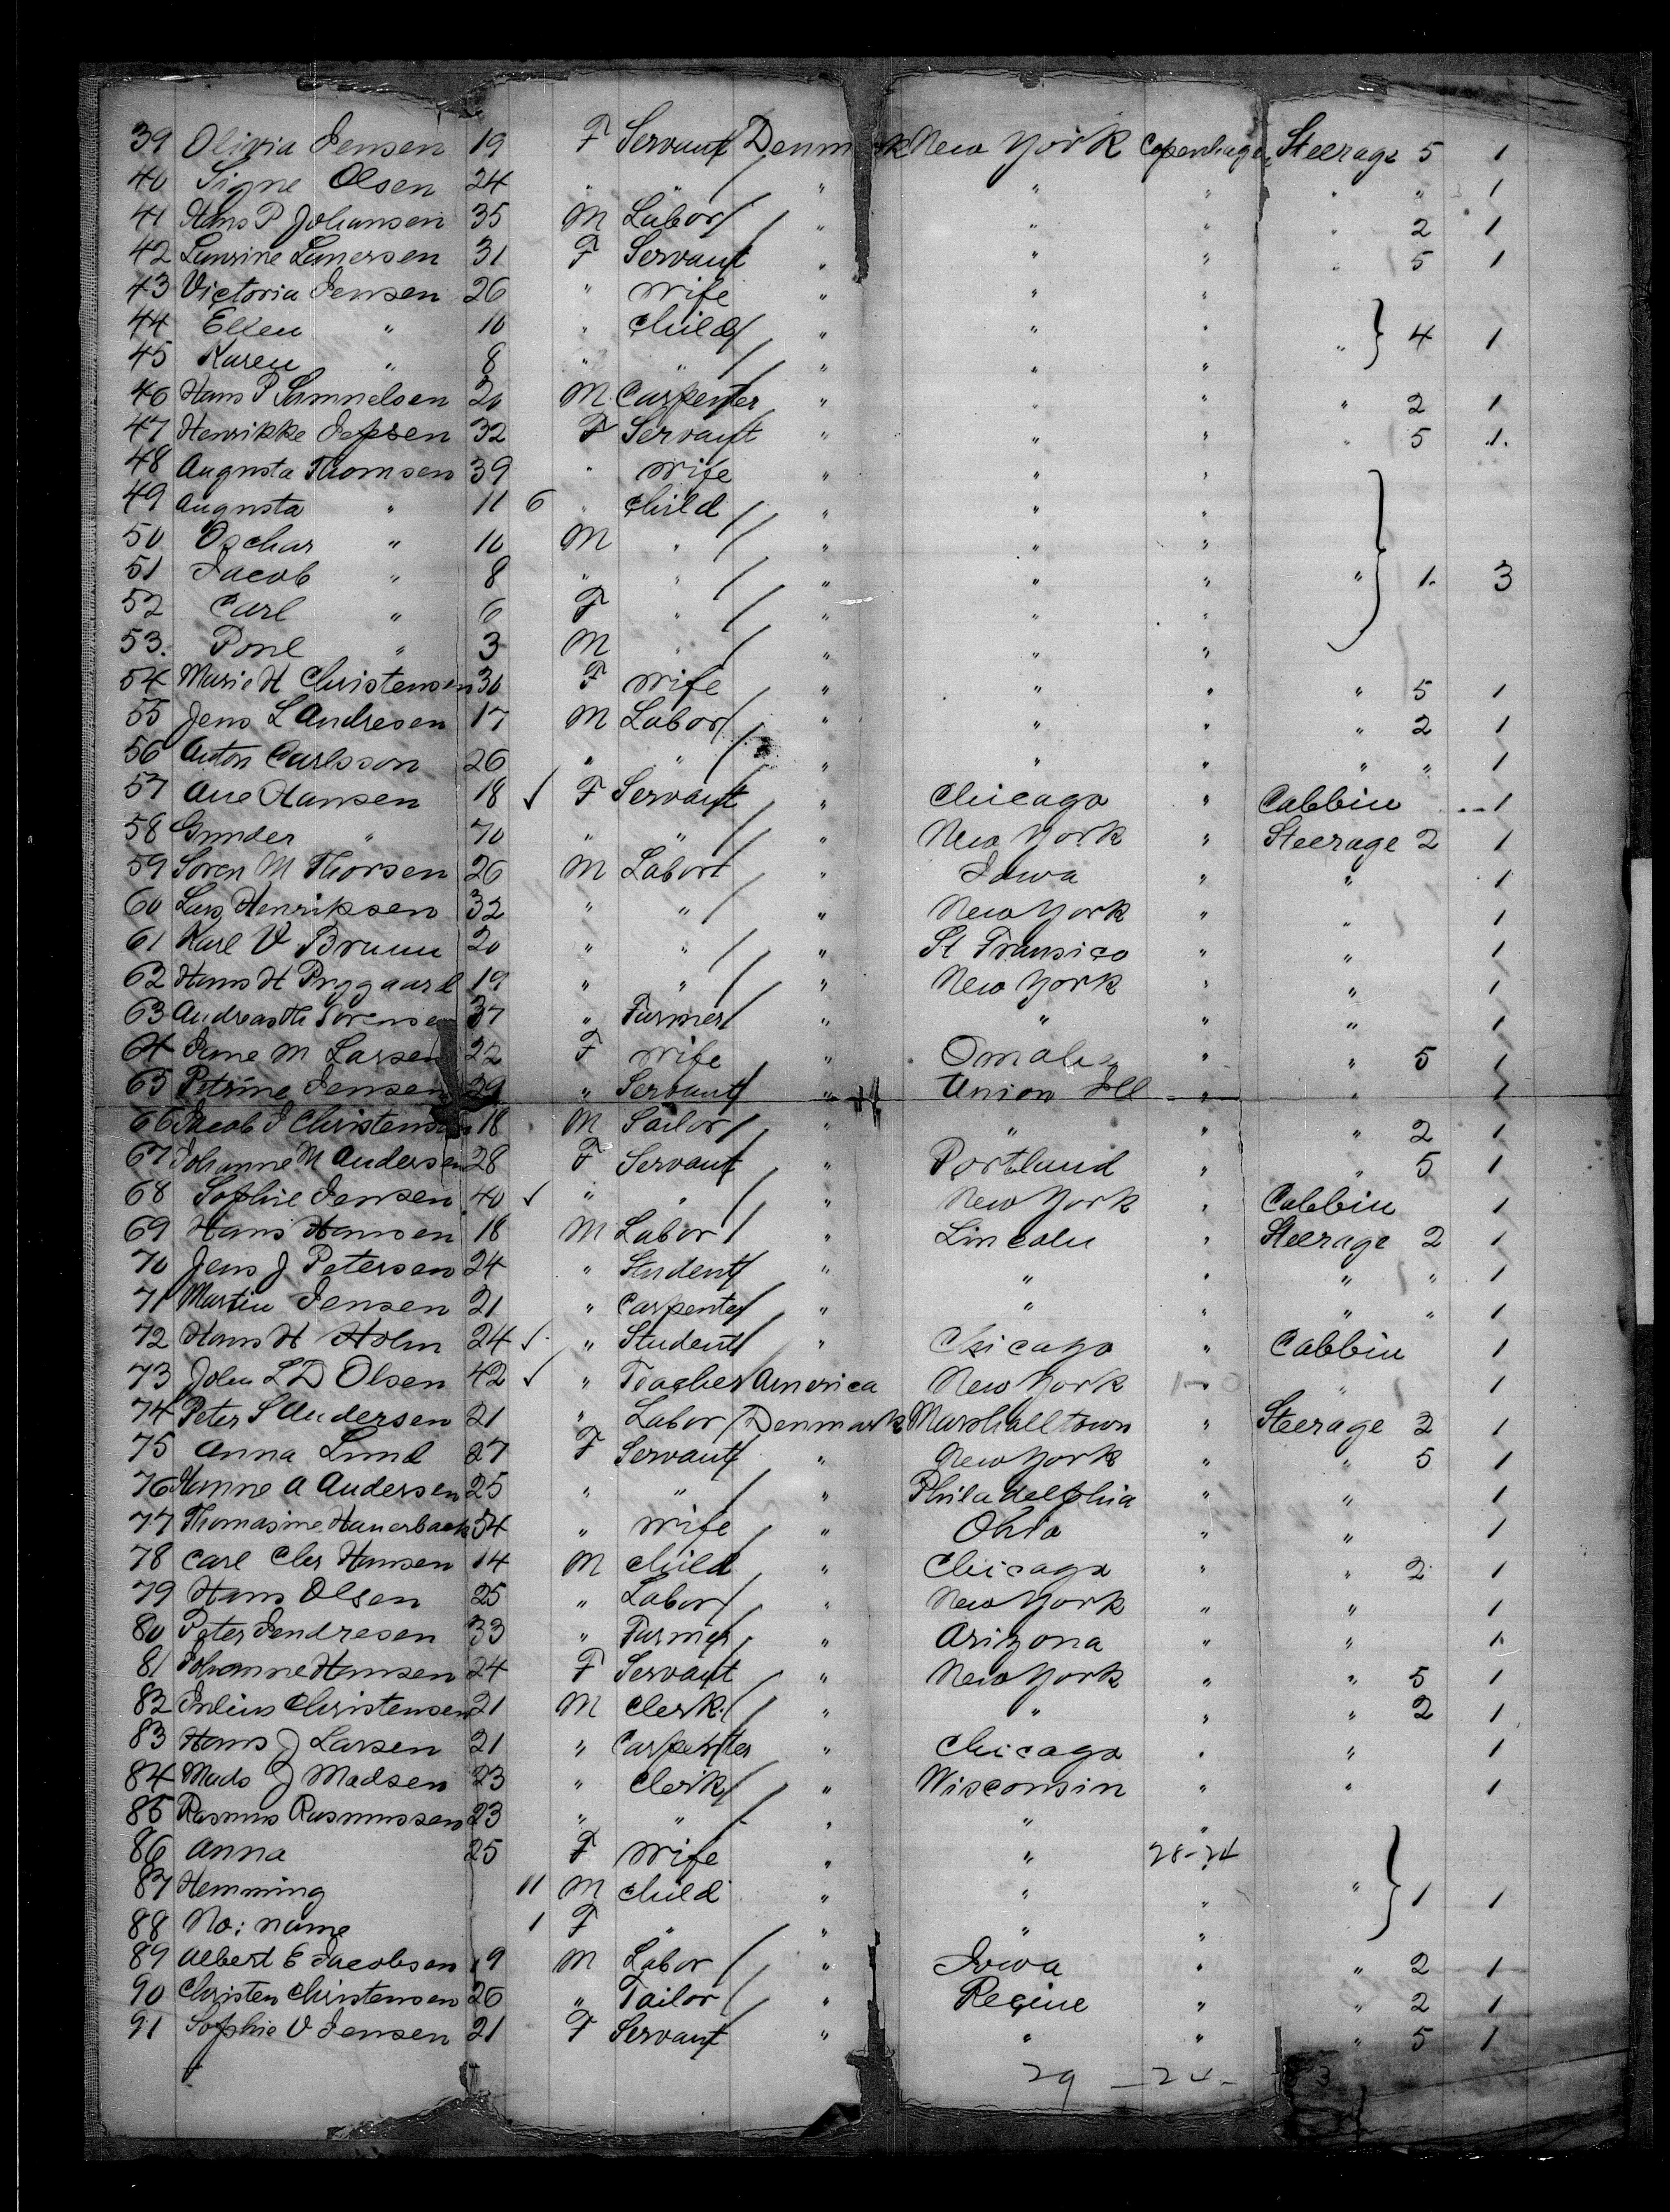 39 Olivia Jensen 19 F Servant Denmark New York Copenhagen Steerage 5 1
40 Signe Olsen 24 " " " " " " " 1
41 Hans P Johansen 35 M Labor " " " " 2 1
42 Laurine Laursen 31 F Servant " " " " 5 1
43 Victoria Jensen 26 " Wife " " "
44 Ellen " 10 " Child " " " " } 4 1
45 Karen " 8 " " " " "
46 Hans P Samuelsen 20 M Carpenter " " " " 2 1
47 Henrikke Jepsen 32 F Servant " " " " 5 1.
48 Augusta Thomsen 39 " Wife " " "
49 Augusta " 11 6 " Child " " "
50 Oschar " 10 M " " " "
51 Jacob " 8 " " " " " " } 1. 3
52 Carl " 6 F " " " "
53. Poul " 3 M " " " "
54 Marie H Christensen 30 F Wife " " " " 5 1
55 Jens L Andresen 17 M Labor " " " " 2 1
56 Anton Carlsson 26 " " " " " " " 1
57 Ane Hansen 18 ✓ F Servant " Chicago " Cabbin 1
58 Gunder " 70 " " " New York " Steerage 2 1
59 Soren M Thorsen 26 M Labor " Iowa " " 1
60 Lars Henriksen 32 " " " New York " " 1
61 Karl V Bruun 20 " " " St Fransico " " 1
62 Hans H Pryggaard 19 " " " New York " " 1
63 Andreas Th Sorensen 37 " Farmer " " " " 1
64 Jane M Larsen 22 F Wife " Omaha " " 5 1
65 Petrine Jensen 39 " Servant " Union Ill " " 1
66 Jacob J Christensen 18 M Sailor " " " " 2 1
67 Johanne M Andersen 28 F Servant " Portland " " 5 1
68 Sophie Jensen 40 ✓ " " " New York " Cabbin 1
69 Hans Hansen 18 M Labor " Lincoln " Steerage 2 1
70 Jens J Petersen 24 " Student " " " " " 1
71 Martin Jensen 21 " Carpenter " " " " " 1
72 Hans H Holm 24 ✓ " Student " Chicago " Cabbin 1
73 John L D Olsen 42 ✓ " Teacher America New York " " 1
74 Peter S Andersen 21 " Labor Denmark Marshalltown " Steerage 2 1
75 Anna Lund 27 F Servant " New York " " 5 1
76 Hanne A Andersen 25 " " " Philadelphia " " 1
77 Thomasine Hauerback 54 " Wife " Ohio " " 1
78 Carl Chr Hansen 14 M Child " Chicago " " 2 1
79 Hans Olsen 25 " Labor " New York " " 1
80 Peter Jendresen 33 " Farmer " Arizona " " 1
81 Johanne Hansen 24 F Servant " New York " " 5 1
82 Julius Christensen 21 M Clerk " " " " 2 1
83 Hans J Larsen 21 " Carpenter " Chicago " " 1
84 Mads J Madsen 23 " Clerk " Wisconsin " " 1
85 Rasmus Rasmussen 23 " " " " "
86 Anna 25 F Wife " " 28-24
87 Hemming 11 M Child " " " " } 1 1
88 No: name 1 F " " " "
89 Albert E Jacobsen 19 M Labor " Iowa " " 2 1
90 Christen Christensen 26 " Tailor " Regine " " 2 1
91 Sophie V Jensen 21 F Servant " " " " 5 1
29 - 24 -